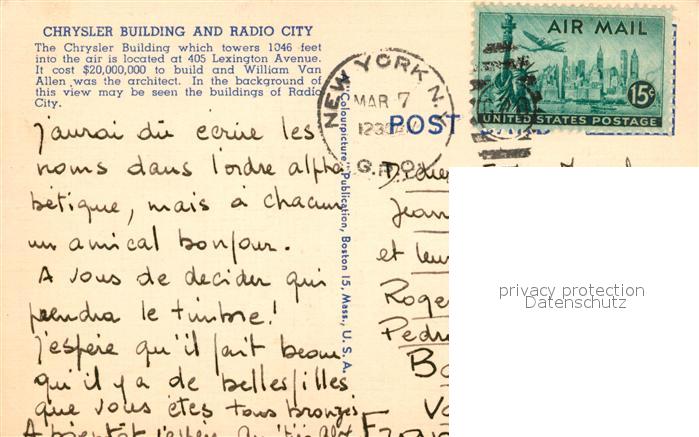 CHRYSLER BUILDING AND RADIO CITY
The Chrysler Building which towers 1046 feet
into the air is located at 405 Lexington Avenue.
It cost $20,000,000 to build and William Van
Allen was the architect. In the background of
this view may be seen the buildings of Radio
City.
AIR MAIL
15¢
UNITED STATES POSTAGE
NEW YORK, N.Y.
MAR 7
G.P.O.
POST
"Colourpicture" Publication, Boston 15, Mass., U. S. A.
j'aurai dû écrire les
noms dans l'ordre alpha
bétique, mais à chacun
un amical bonjour.
A vous de décider qui
prendra le timbre!
j'espère qu'il fait beau
qu'il y a de belles filles
que vous êtes tous bronzés
A bientôt j'espère
Jean
et leur
Roger
Pedro
privacy protection
Datenschutz